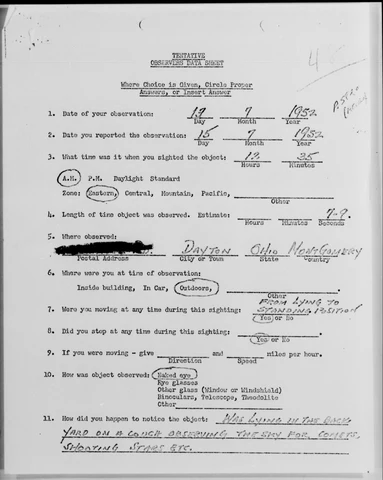 TENTATIVE
OBSERVERS DATA SHEET
4
Where Choice is Given, Circle Proper
Answers, or Insert Answer
1. Date of your observation: 7 1952
Day Month Year
2. Date you reported the observation: 15 7 1952
Day Month Year
3. What time was it when you sighted the object: 12 35
Hours Minutes
A.M. P.M. Daylight Standard
Zone: Eastern, Central, Mountain, Pacific,
Other
4. Length of time object was observed. Estimate: 7-9.
Hours Minutes Seconds
5. Where observed:
DAYTON OHIO MONTGOMERY
Postal Address City or Town State Country
6. Where were you at time of observation:
Inside building, In Car, Outdoors,
Other
FROM LYING TO
7. Were you moving at any time during this sighting: STANDING POSITION
Yes or No
8. Did you stop at any time during this sighting:
Yes or No
9. If you were moving - give and miles per hour.
Direction Speed
10. How was object observed: Naked eye
Eye glasses
Other glass (Window or Windshield)
Binoculars, Telescope, Theodolite
Other
11. How did you happen to notice the object: WAS LYING IN THE BACK
YARD ON A COUCH OBSERVING THE SKY FOR COMETS,
SHOOTING STARS ETC.